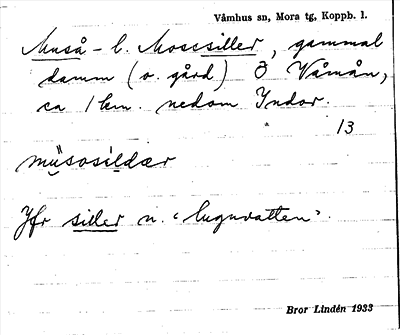 Våmhus sn, Mora tg, Koppb. l.
Muså- l. Mosssiller, gammal
damm (o. gård) Ö Våmån,
ca 1 km. nedom Indor.
13
Jfr siller n. "lugnvatten".
Bror Lindén 1933